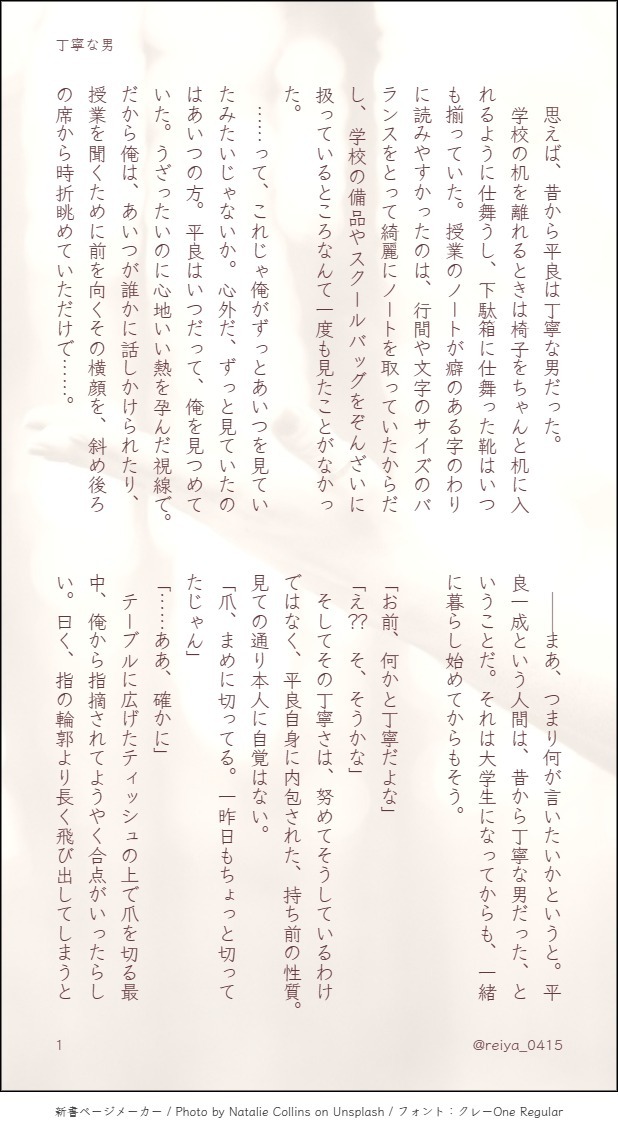 丁寧な男
　思えば、昔から平良は丁寧な男だった。
　学校の机を離れるときは椅子をちゃんと机に入
れるように仕舞うし、下駄箱に仕舞った靴はいつ
も揃っていた。授業のノートが癖のある字のわり
に読みやすかったのは、行間や文字のサイズのバ
ランスをとって綺麗にノートを取っていたからだ
し、学校の備品やスクールバッグをぞんざいに
扱っているところなんて一度も見たことがなかっ
た。
　……って、これじゃ俺がずっとあいつを見てい
たみたいじゃないか。心外だ、ずっと見ていたの
はあいつの方。平良はいつだって、俺を見つめて
いた。うざったいのに心地いい熱を孕んだ視線で。
だから俺は、あいつが誰かに話しかけられたり、
授業を聞くために前を向くその横顔を、斜め後ろ
の席から時折眺めていただけで……。
　――まあ、つまり何が言いたいかというと。平
良一成という人間は、昔から丁寧な男だった、と
いうことだ。それは大学生になってからも、一緒
に暮らし始めてからもそう。
「お前、何かと丁寧だよな」
「え??　そ、そうかな」
　そしてその丁寧さは、努めてそうしているわけ
ではなく、平良自身に内包された、持ち前の性質。
見ての通り本人に自覚はない。
「爪、まめに切ってる。一昨日もちょっと切って
たじゃん」
「……ああ、確かに」
　テーブルに広げたティッシュの上で爪を切る最
中、俺から指摘されてようやく合点がいったらし
い。曰く、指の輪郭より長く飛び出してしまうと
1
@reiya_0415
新書ページメーカー / Photo by Natalie Collins on Unsplash / フォント：クレーOne Regular